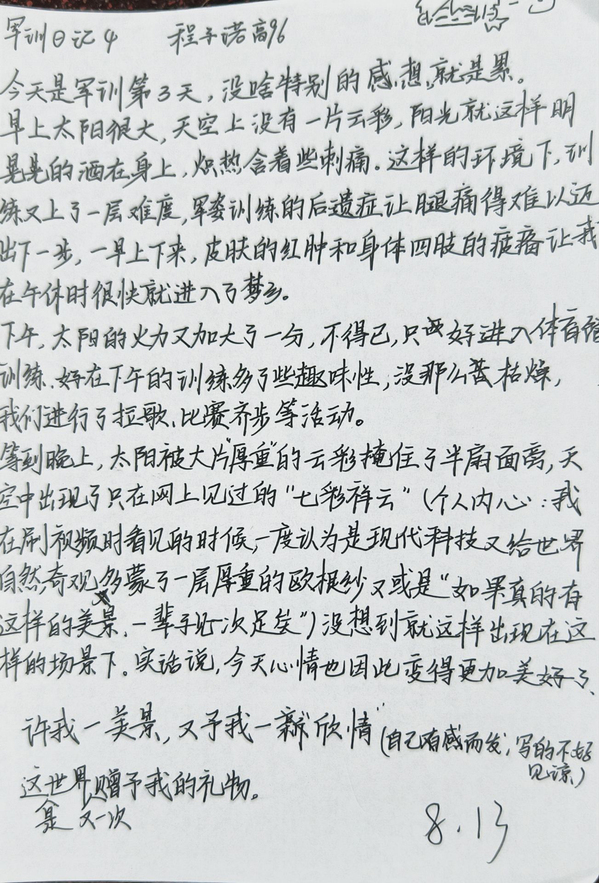 军训日记4 程子诺高96
今天是军训第3天，没啥特别的感想，就是累。
早上太阳很大，天空上没有一片云彩，阳光就这样明
晃晃的洒在身上，炽热含着些刺痛。这样的环境下，训
练又上了一层难度，军姿训练的后遗症让腿痛得难以迈
出下一步，一早上下来，皮肤的红肿和身体四肢的疲瘏让我
在午休时很快就进入了梦乡。
下午，太阳的火力又加大了一分，不得已，只好进入体育馆
训练，好在下午的训练多了些趣味性，没那么枯燥，
我们进行了拉歌、比赛齐步等活动。
等到晚上，太阳被大片"厚重"的云彩掩住了半扇面旁，天
空中出现了只在网上见过的"七彩祥云"（个人内心：我
在刷视频时看见的时候，一度认为是现代科技又给世界
自然奇观多蒙了一层厚重的欧根纱又或是"如果真的有
这样的美景，一辈子见次足矣"）没想到就这样出现在这
样的场景下。实话说，今天心情也因此变得更加美好了、
许我一美景，又予我一"欣情"（自己有感而发，写的不好
见谅）
这世界赠予我的礼物。
是 又一次
8.13